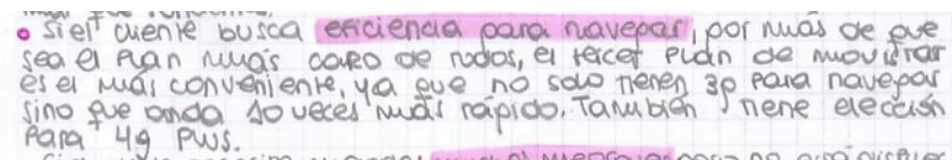 • Si el cliente busca eficiencia para navegar, por más de que
sea el Plan más caro de todos, el tercer plan de movistar
es el más conveniente, ya que no solo tienen 3g para navegar
sino que anda 10 veces más rápido. También tiene elección
para 4g plus.